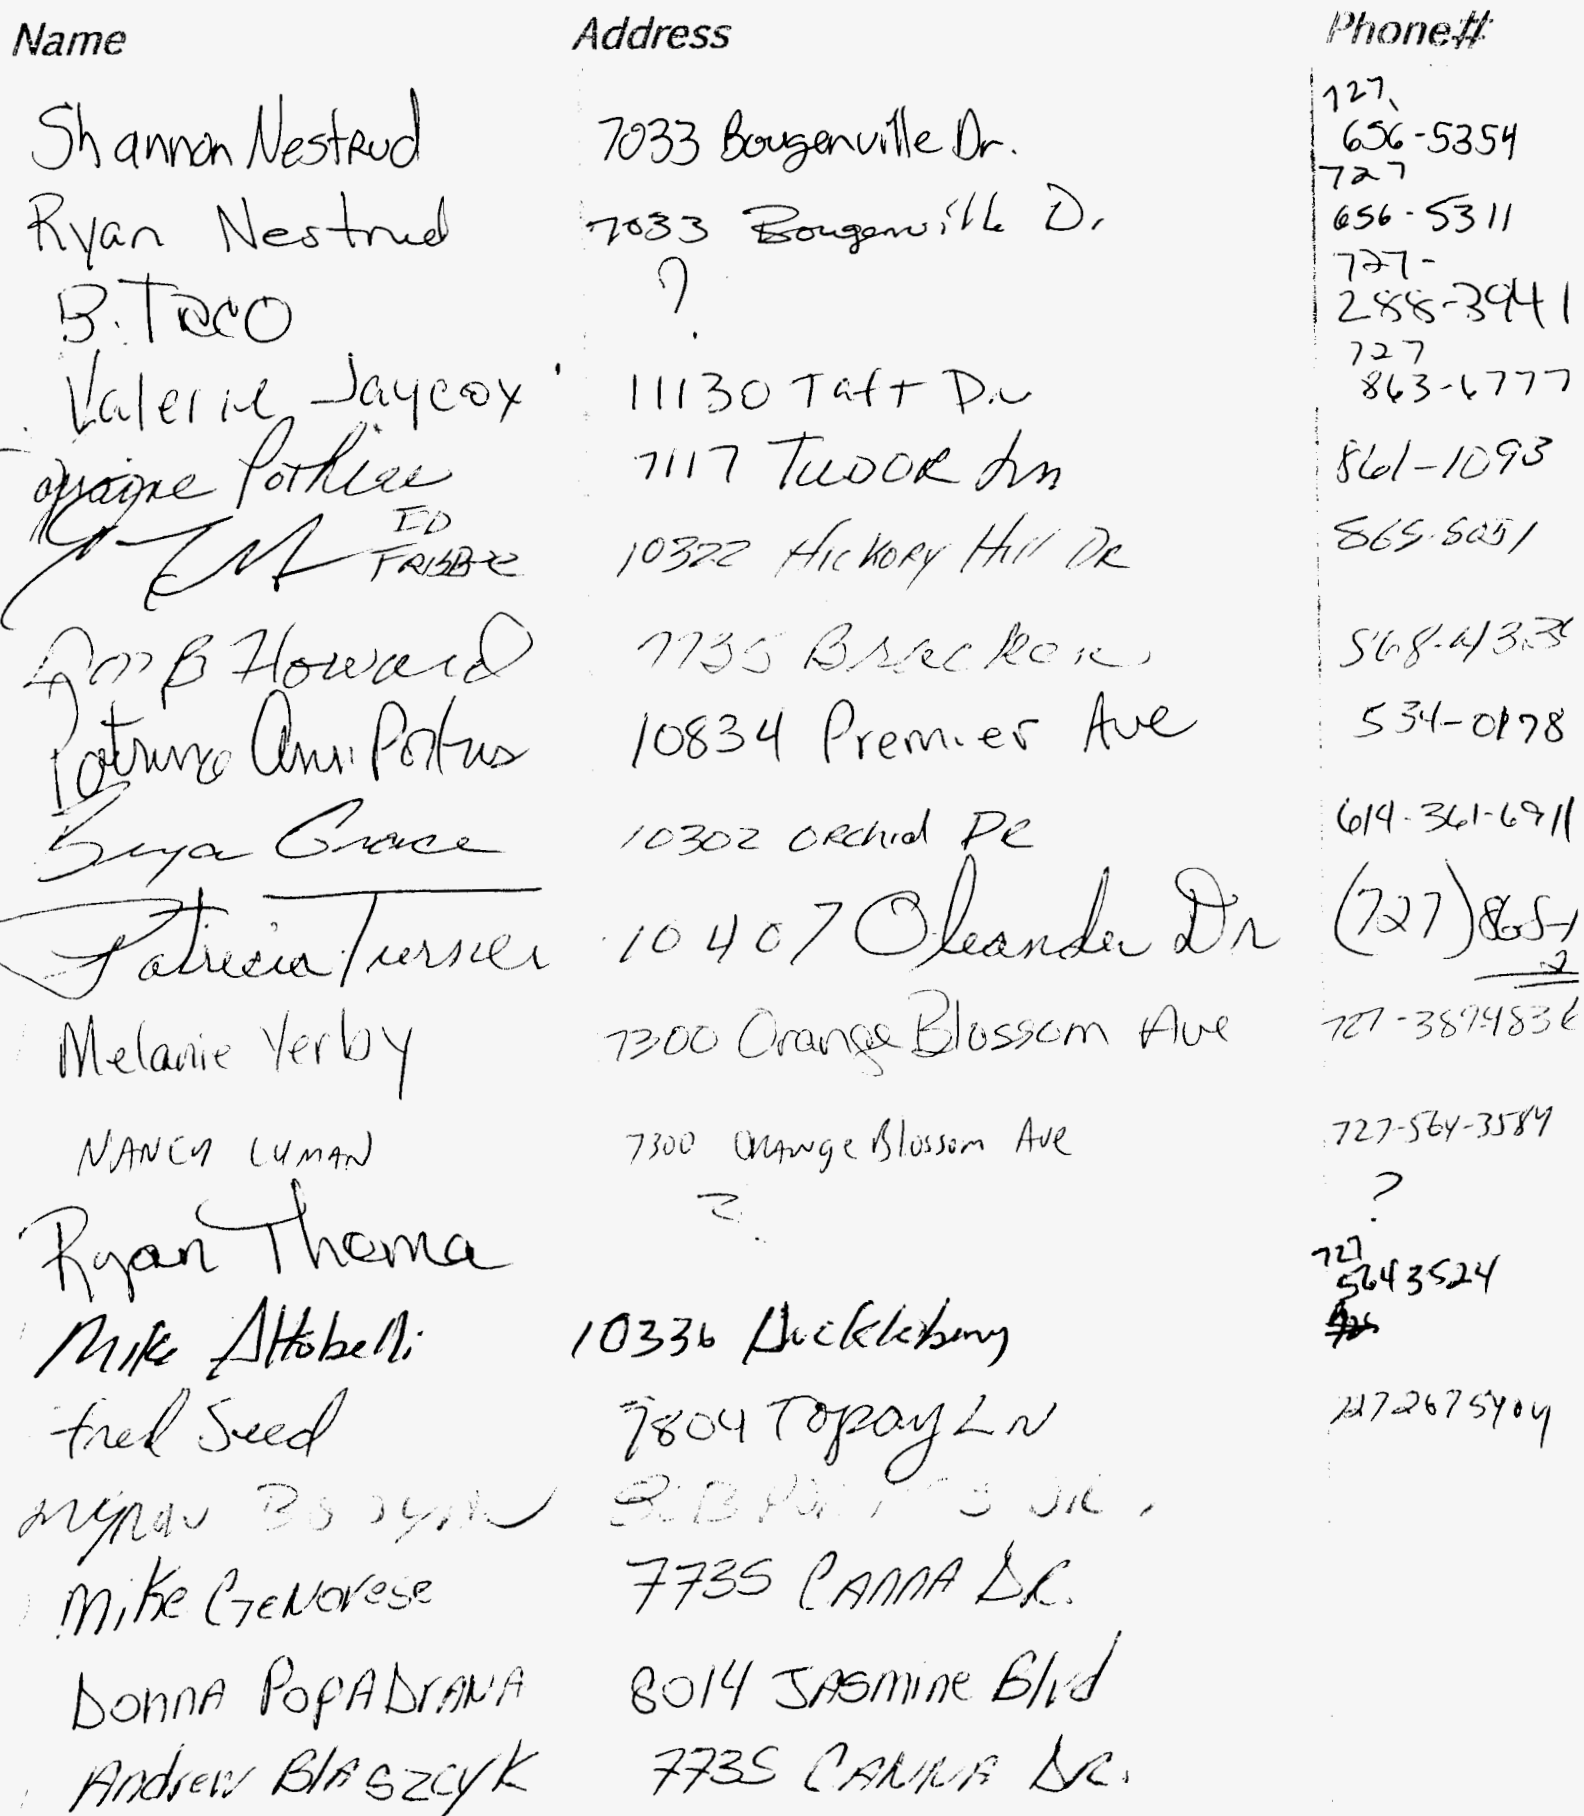 Name Address Phone#
727
Shannon Nestrud 7033 Bougenville Dr. 656-5354
727
Ryan Nestrud 7033 Bougenville D. 656-5311
727-
B. TACO ? 288-3941
727
Valerie Jaycox 11130 Taft Dr 863-6777
Pothier 7117 TUDOR Ln 861-1093
ED
FRISBEE 10322 HICKORY Hill DR
B Howard 7735
Ann Portus 10834 Premier Ave 534-0178
Grace 10302 ORchid DR 614-361-6911
Patricia Turner 10407 Oleander Dr (727) 865-
Melanie Yerby 7300 Orange Blossom Ave 727-3894836
NANCY LUMAN 7300 ORANge Blossom Ave 727-564-3584
Ryan Thoma ? ?
727
5643524
Mike Altobelli 10336 Huckleberry
Fred Seed 9804 Topay LN 7272675404
Mike GeNovese 7735 CANNA DR.
DonnA PopADrANA 8014 JASmine Blvd
Andrew BlASZCYK 7735 CANNA DR.